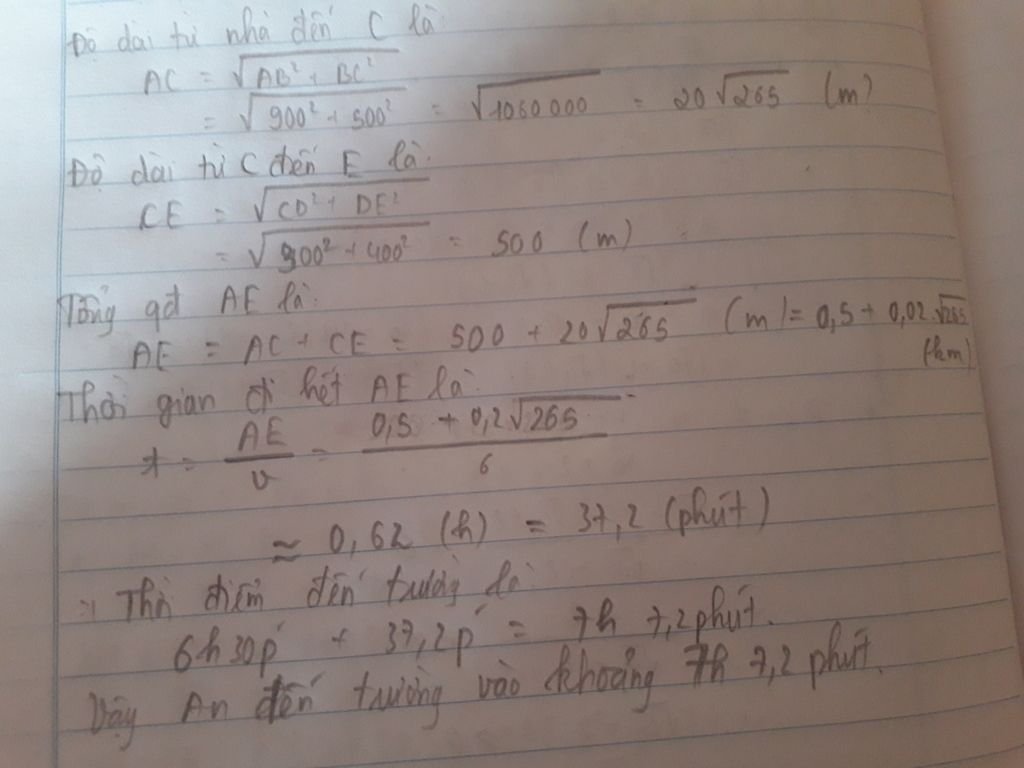 Độ dài từ nhà đến C là:
AC = √(AB² + BC²)
= √(900² + 500²) = √1060000 = 20√265 (m)
Độ dài từ C đến E là:
CE = √(CD² + DE²)
= √(300² + 400²) = 500 (m)
Tổng qđ AE là:
AE = AC + CE = 500 + 20√265 (m) = 0,5 + 0,02√265 (km)
Thời gian đi hết AE là:
t = AE/v = (0,5 + 0,2√265)/6
≈ 0,62 (h) = 37,2 (phút)
Thời điểm đến trường là:
6h30p + 37,2p = 7h 7,2 phút.
Vậy An đến trường vào khoảng 7h 7,2 phút.